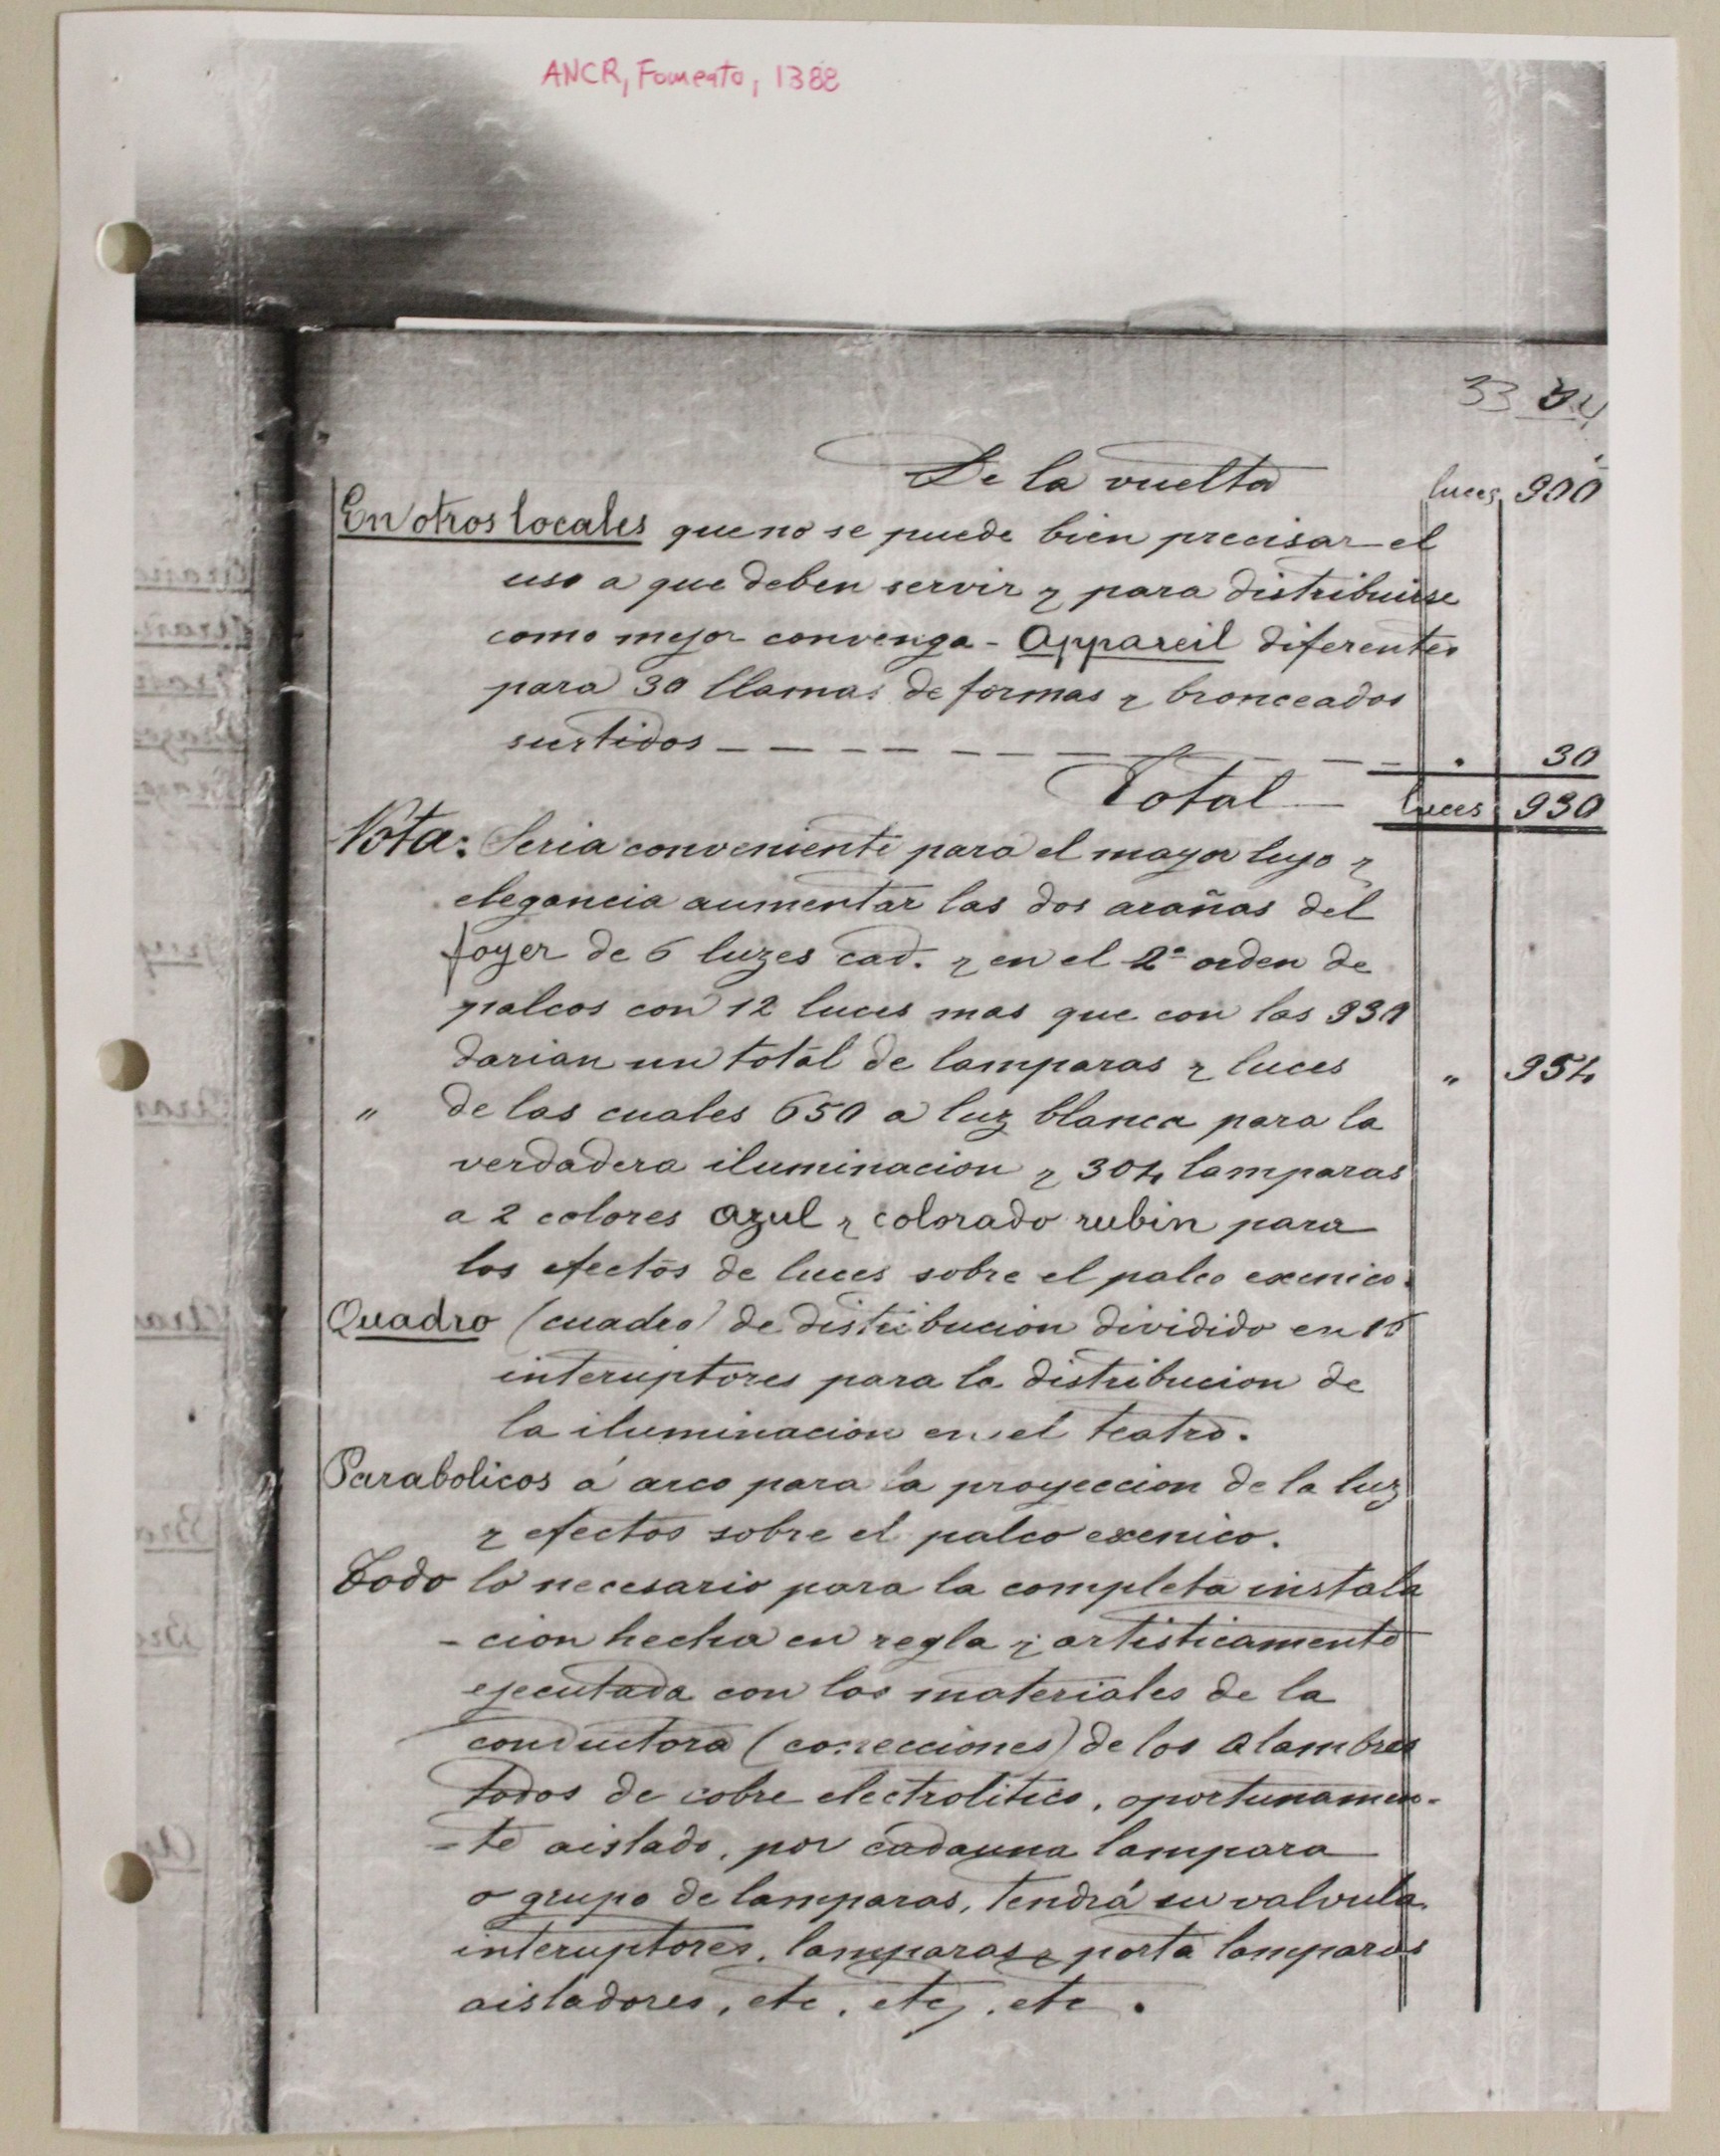 ANCR, Fomento, 1388
33
De la vuelta luces 900
En otros locales que no se puede bien precisar el
uso a que deben servir y para distribuirse
como mejor convenga - Appareil diferentes
para 30 llamas de formas y bronceados
surtidos - - - - - - - - - - " 30
Total - luces 930
Nota: Seria conveniente para el mayor lujo y
elegancia aumentar las dos arañas del
foyer de 6 luzes cad. y en el 2º orden de
palcos con 12 luces mas que con las 930
darian un total de lamparas y luces " 954
" de las cuales 650 a luz blanca para la
verdadera iluminacion y 304 lamparas
a 2 colores azul y colorado rubin para
los efectos de luces sobre el palco excenico.
Quadro (cuadro) de distribucion dividido en
interuptores para la distribucion de
la iluminacion en el teatro.
Parabolicos á arco para la proyeccion de la luz
y efectos sobre el palco excenico.
Todo lo necesario para la completa instala
-cion hecha en regla y artisticamente
ejecutada con los materiales de la
conductora (conecciones) de los alambres
todos de cobre electrolitico, oportunamen-
-te aislado, por cada una lampara
o grupo de lamparas, tendrá su valvula
interuptores, lamparas y porta lamparas
aisladores, etc, etc, etc.